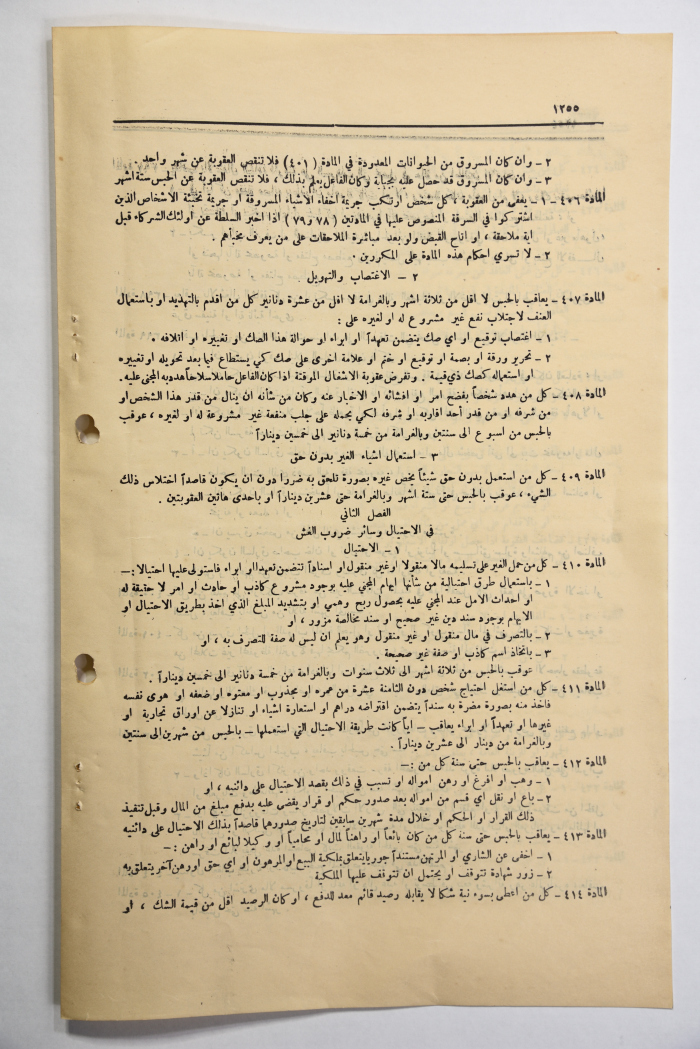 ١٢٥٥
٢ – وان كان المسروق من الحيوانات المعدودة في المادة ( ٤٠١ ) فلا تنقص العقوبة عن شهر واحد .
٣ – وان كان المسروق قد حصل عليه بجناية وكان الفاعل يعلم بذلك ، فلا تنقص العقوبة عن الحبس ستة اشهر
المادة ٤٠٦ – ١ – يعفى من العقوبة ، كل شخص ارتكب جريمة اخفاء الاشياء المسروقة أو جريمة تخبئة الاشخاص الذين
اشتركوا في السرقة المنصوص عليها في المادتين ( ٧٨ و ٧٩ ) اذا اخبر السلطة عن أولئك الشركاء قبل
اية ملاحقة ، او اتاح القبض ولو بعد مباشرة الملاحقات على من يعرف مخبأهم .
٢ – لا تسري احكام هذه المادة على المكررين .
٢ – الاغتصاب والتهويل
المادة ٤٠٧ – يعاقب بالحبس لا اقل من ثلاثة اشهر وبالغرامة لا اقل من عشرة دنانير كل من اقدم بالتهديد او باستعمال
العنف لاجتلاب نفع غير مشروع له او لغيره على :
١ – اغتصاب توقيع او اي صك يتضمن تعهداً او ابراء او حوالة هذا الصك او تغييره او اتلافه .
٢ – تحرير ورقة او بصمة او توقيع او ختم او علامة اخرى على صك كي يستطاع فيما بعد تحويله او تغييره
او استعماله كصك ذي قيمة . وتفرض عقوبة الاشغال المؤقتة اذا كان الفاعل حاملا سلاحاً هدد به المجني عليه .
المادة ٤٠٨ – كل من هدد شخصاً بفضح امر او افشائه او الاخبار عنه وكان من شأنه ان ينال من قدر هذا الشخص او
من شرفه او من قدر أحد اقاربه او شرفه لكي يحمله على جلب منفعة غير مشروعة له او لغيره ، عوقب
بالحبس من اسبوع الى سنتين وبالغرامة من خمسة دنانير الى خمسين ديناراً
٣ – استعمال اشياء الغير بدون حق
المادة ٤٠٩ – كل من استعمل بدون حق شيئاً يخص غيره بصورة تلحق به ضررا دون ان يكون قاصداً اختلاس ذلك
الشيء ، عوقب بالحبس حتى ستة اشهر وبالغرامة حتى عشرين ديناراً او باحدى هاتين العقوبتين .
الفصل الثاني
في الاحتيال وسائر ضروب الغش
١ – الاحتيال
المادة ٤١٠ – كل من حمل الغير على تسليمه مالا منقولا او غير منقول او اسناداً تتضمن تعهدا او ابراء فاستولى عليها احتيالا : –
١ – باستعمال طرق احتيالية من شأنها ايهام المجني عليه بوجود مشروع كاذب او حادث او امر لا حقيقة له
او احداث الامل عند المجني عليه بحصول ربح وهمي او بتشديد المبلغ الذي اخذ بطريق الاحتيال او
الايهام بوجود سند دين غير صحيح او سند مخالصة مزور ، او
٢ – بالتصرف في مال منقول او غير منقول وهو يعلم ان ليس له صفة للتصرف به ، او
٣ – باتخاذ اسم كاذب او صفة غير صحيحة .
عوقب بالحبس من ثلاثة اشهر الى ثلاث سنوات وبالغرامة من خمسة دنانير الى خمسين ديناراً .
المادة ٤١١ – كل من استغل احتياج شخص دون الثامنة عشرة من عمره او مجذوب او معتوه او ضعفه او هوى نفسه
فاخذ منه بصورة مضرة به سنداً يتضمن اقتراضه دراهم او استعارة اشياء او تنازلا عن اوراق تجارية او
غيرها او تعهداً او ابراء يعاقب – اياً كانت طريقة الاحتيال التي استعملها – بالحبس من شهرين الى سنتين
وبالغرامة من دينار الى عشرين ديناراً .
المادة ٤١٢ – يعاقب بالحبس حتى سنة كل من : –
١ – وهب او افرغ او رهن امواله او تسبب في ذلك بقصد الاحتيال على دائنيه ، او
٢ – باع او نقل اي قسم من امواله بعد صدور حكم او قرار يقضي عليه بدفع مبلغ من المال وقبل تنفيذ
ذلك القرار او الحكم او خلال مدة شهرين سابقين لتاريخ صدورهما قاصداً بذلك الاحتيال على دائنيه
المادة ٤١٣ – يعاقب بالحبس حتى سنة كل من كان بائعاً او راهناً لمال او محامياً او وكيلا لبائع او راهن : –
١ – اخفى عن الشاري او المرتهن مستنداً جوهريا يتعلق بملكية المبيع او المرهون او اي حق او رهن آخر يتعلق به
٢ – زور شهادة تتوقف او يحتمل ان تتوقف عليها الملكية
المادة ٤١٤ – كل من اعطى بسوء نية شكا لا يقابله رصيد قائم معد للدفع ، او كان الرصيد اقل من قيمة الشك ، او